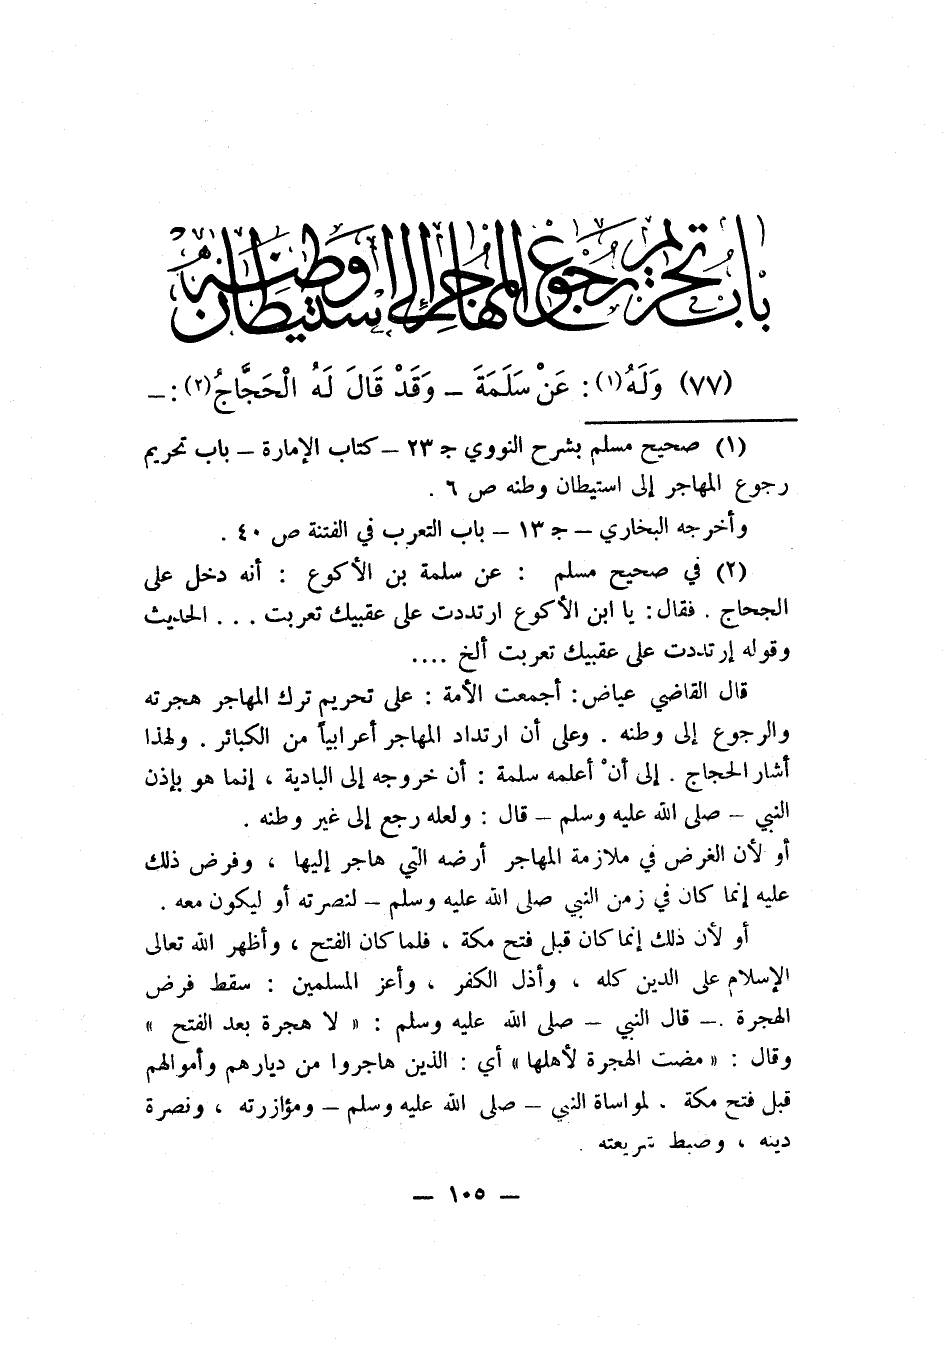 باب تحريم رجوع المهاجر إلى استيطان وطنه
(٧٧) وَلَهُ(١) : عَنْ سَلَمَةَ – وَقَدْ قَالَ لَهُ الْحَجَّاجُ(٢) : –
(١) صحيح مسلم بشرح النووي جـ ٢٣ – كتاب الإمارة – باب تحريم
رجوع المهاجر إلى استيطان وطنه ص ٦ .
وأخرجه البخاري – جـ ١٣ – باب التعرب في الفتنة ص ٤٠ .
(٢) في صحيح مسلم : عن سلمة بن الأكوع : أنه دخل على
الجحاج . فقال : يا ابن الأكوع ارتددت على عقبيك تعربت . . . الحديث
وقوله إرتددت على عقبيك تعربت ألخ ....
قال القاضي عياض : أجمعت الأمة : على تحريم ترك المهاجر هجرته
والرجوع إلى وطنه . وعلى أن ارتداد المهاجر أعرابياً من الكبائر . ولهذا
أشار الحجاج . إلى أنْ أعلمه سلمة : أن خروجه إلى البادية ، إنما هو بإذن
النبي – صلى الله عليه وسلم – قال : ولعله رجع إلى غير وطنه .
أو لأن الغرض في ملازمة المهاجر أرضه التي هاجر إليها ، وفرض ذلك
عليه إنما كان في زمن النبي صلى الله عليه وسلم – لنصرته أو ليكون معه .
أو لأن ذلك إنما كان قبل فتح مكة ، فلما كان الفتح ، وأظهر الله تعالى
الإسلام على الدين كله ، وأذل الكفر ، وأعز المسلمين : سقط فرض
الهجرة .– قال النبي – صلى الله عليه وسلم : « لا هجرة بعد الفتح »
وقال : « مضت الهجرة لأهلها » أي : الذين هاجروا من ديارهم وأموالهم
قبل فتح مكة . لمواساة النبي – صلى الله عليه وسلم – ومؤازرته ، ونصرة
دينه ، وضبط شريعته .
– ١٠٥ –